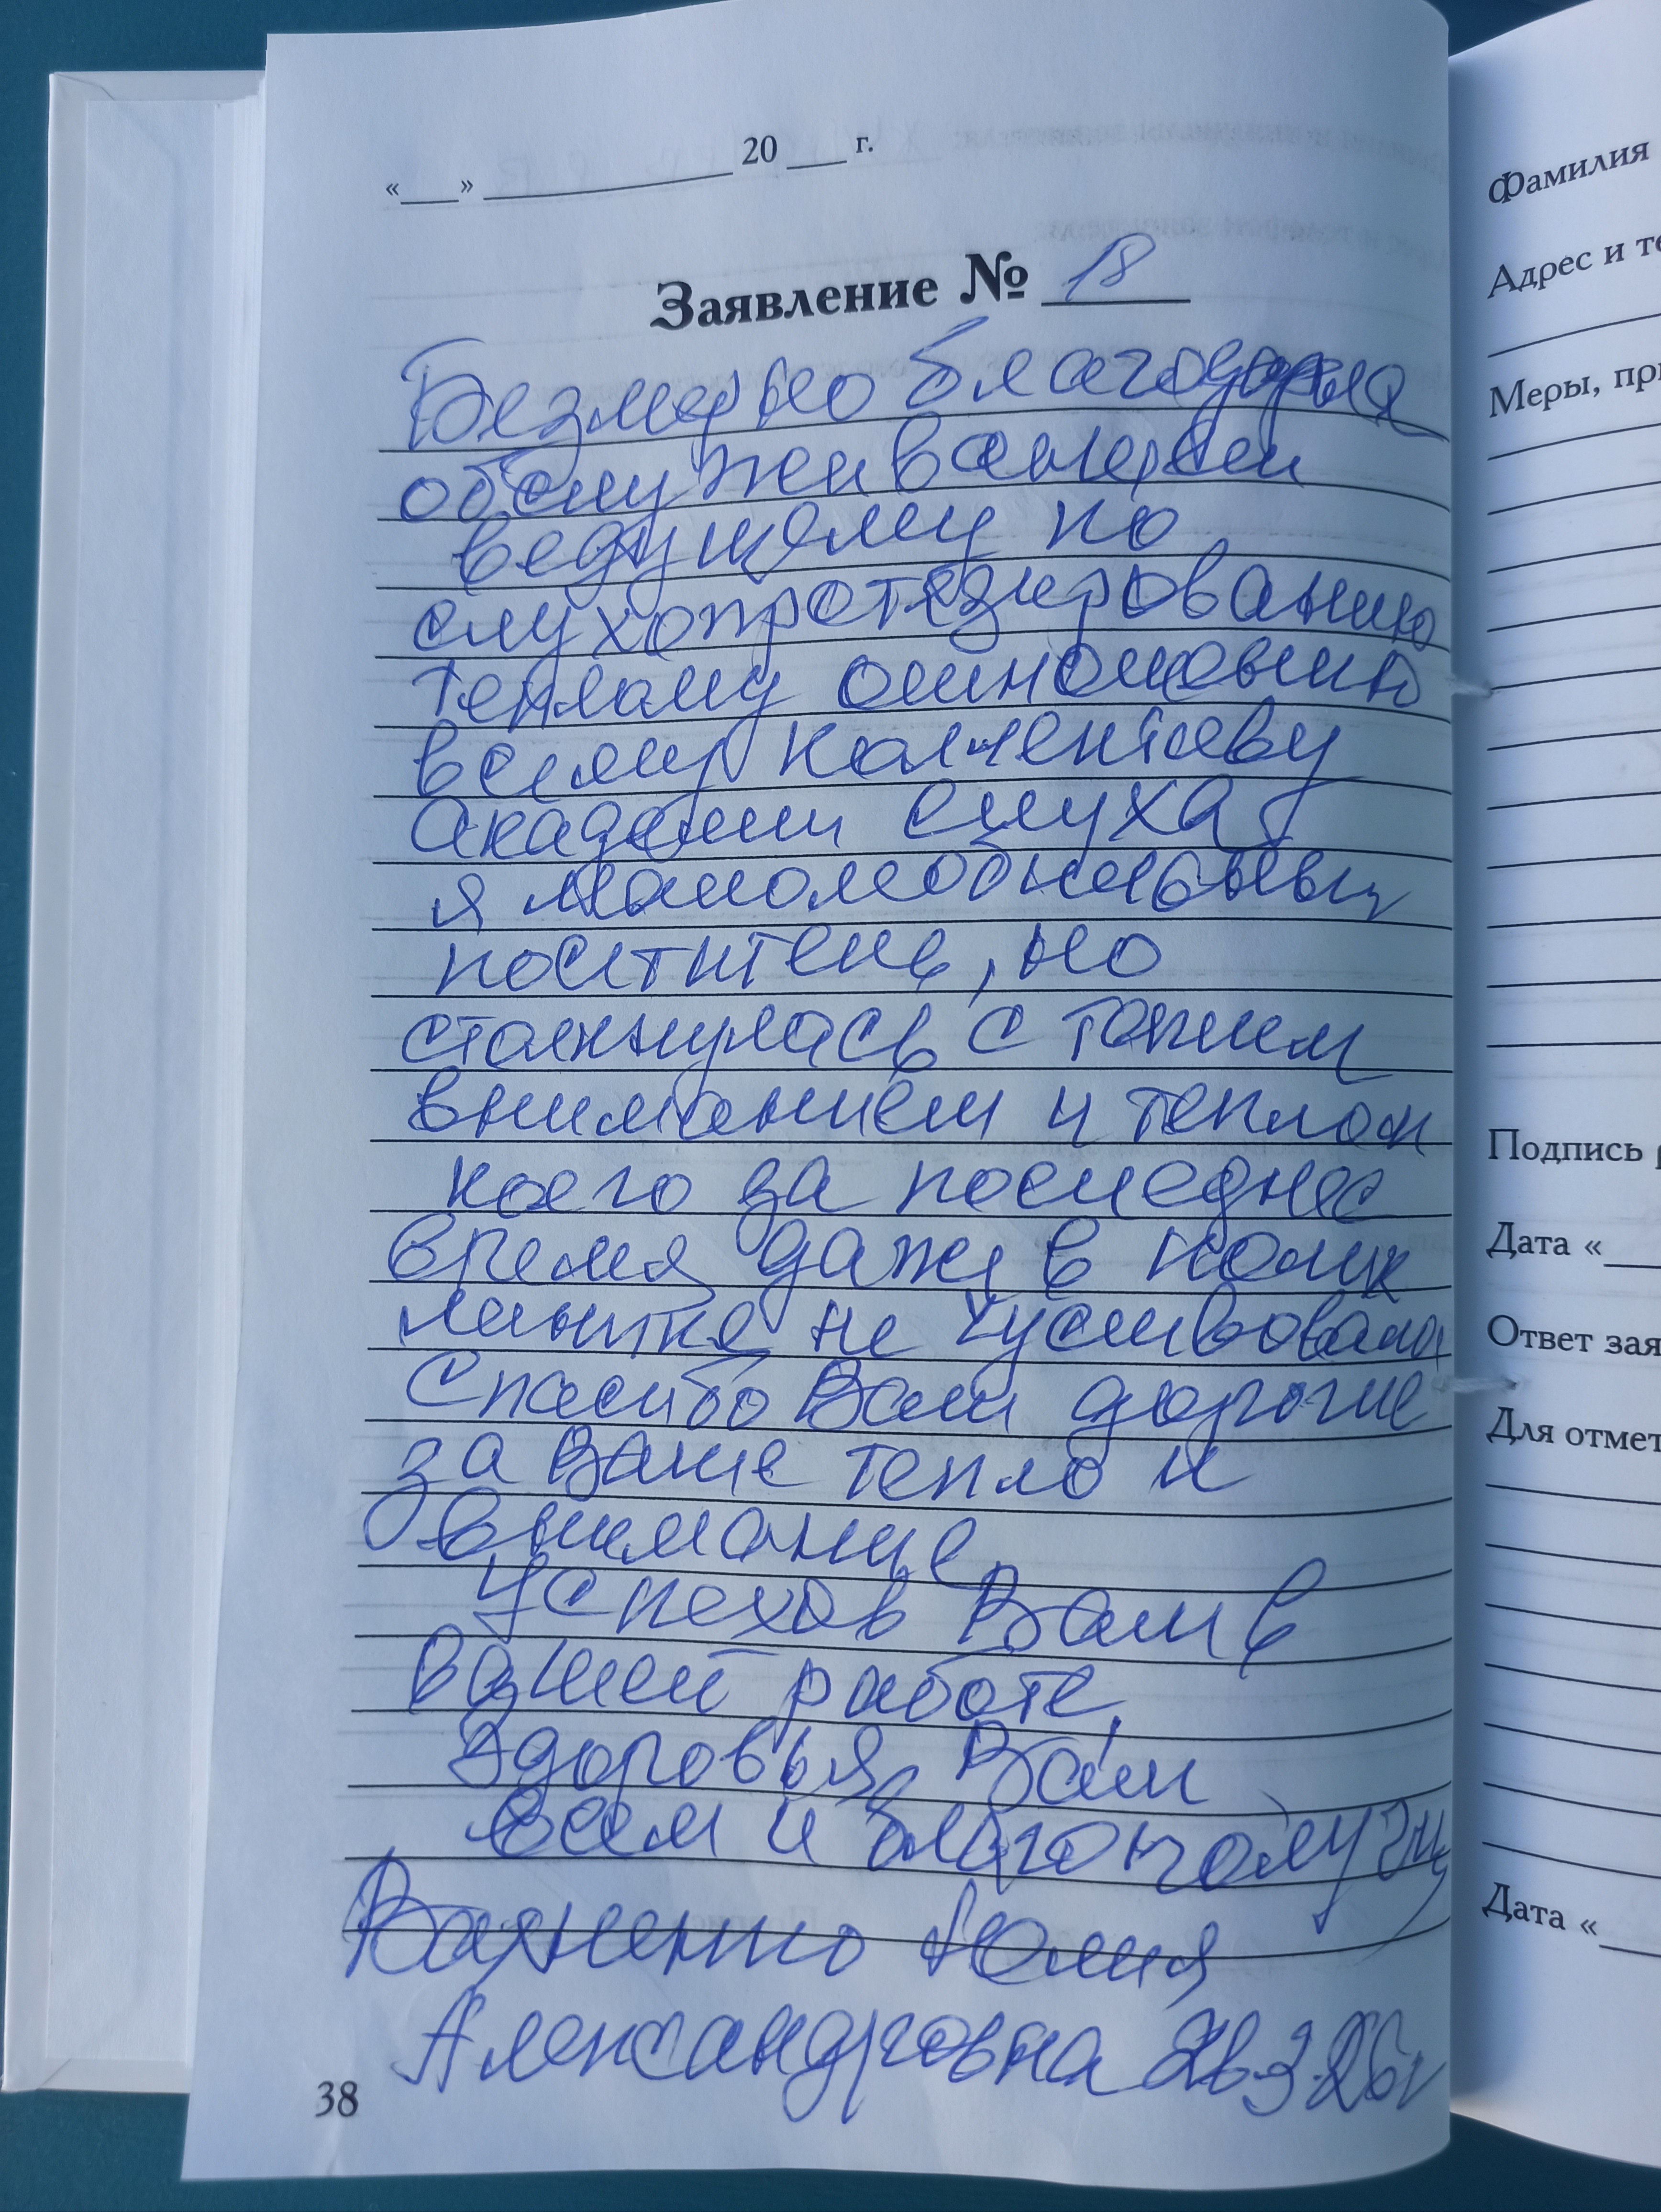 «___» ____________ 20 ___ г.
Заявление № 18
Безмерно благодарна
обслуживанием
ведущему по
слухопротезированию
теплому отношению
всему коллективу
Академии слуха
я маломобильный
поситітель, но
столкнулась с таким
вниманием и теплом
коего за последнее
время даже в полик
линике не чуствовала
Спасибо Вам дорогие
за Ваше тепло и
внимание
Успехов Вам в
вашей работе,
Здоровья Вам
всем и благополучия
Юлия
Александровна 26.3.26г
38
Фамилия
Адрес и те
Меры, при
Подпись р
Дата «
Ответ зая
Для отмет
Дата «